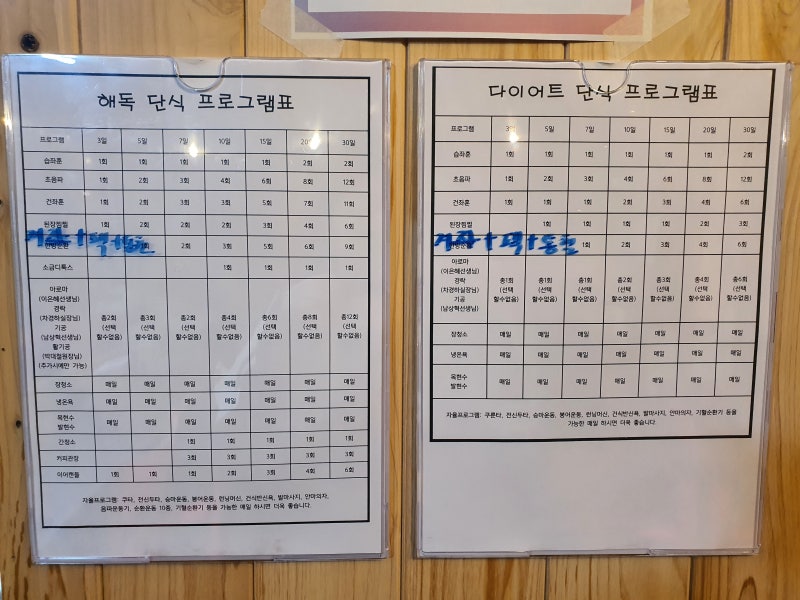 해독 단식 프로그램표
프로그램 3일 5일 7일 10일 15일 20일 30일
습좌훈 1회 1회 1회 1회 1회 2회 2회
초음파 1회 2회 3회 4회 6회 8회 12회
건좌훈 1회 2회 3회 3회 5회 7회 11회
된장찜찔 1회 2회 2회 2회 3회 4회 6회
2회 3회 5회 6회 9회
소금디톡스 1회 1회 1회 1회
아로마
(이은혜선생님)
경락
(차경하실장님)
기공
(남상혁선생님)
활기공
(박대철원장님)
(추가시에만 가능)
총2회 (선택 할수없음) 총3회 (선택 할수없음) 총2회 (선택 할수없음) 총4회 (선택 할수없음) 총6회 (선택 할수없음) 총8회 (선택 할수없음) 총12회 (선택 할수없음)
장청소 매일 매일 매일 매일 매일 매일 매일
냉온욕 매일 매일 매일 매일 매일 매일 매일
옥현수
발현수
매일 매일 매일 매일 매일 매일 매일
간청소 1회 1회 1회 1회 1회
커피관장 3회 3회 3회 3회 3회
이어캔들 1회 1회 1회 2회 3회 4회 6회
자율프로그램: 쿠타, 전신두타, 승마운동, 붕어운동, 런닝머신, 건식반신욕, 발마사지, 안마의자,
음파운동기, 순환운동 10종, 기혈순환기 등을 가능한 매일 하시면 더욱 좋습니다.
다이어트 단식 프로그램표
프로그램 3일 5일 7일 10일 15일 20일 30일
습좌훈 1회 1회 1회 1회 1회 1회 2회
초음파 1회 2회 3회 4회 6회 8회 12회
건좌훈 1회 1회 1회 2회 3회 4회 6회
된장찜찔 1회 1회 1회 1회 2회 3회
1회 2회 3회 4회 6회
아로마
(이은혜선생님)
경락
(차경하실장님)
기공
(남상혁선생님)
총1회 (선택 할수없음) 총1회 (선택 할수없음) 총1회 (선택 할수없음) 총2회 (선택 할수없음) 총3회 (선택 할수없음) 총4회 (선택 할수없음) 총6회 (선택 할수없음)
장청소 매일 매일 매일 매일 매일 매일 매일
냉온욕 매일 매일 매일 매일 매일 매일 매일
옥현수
발현수
매일 매일 매일 매일 매일 매일 매일
자율프로그램: 쿠룬타, 전신두타, 승마운동, 붕어운동, 런닝머신, 건식반신욕, 발마사지, 안마의자, 기혈순환기 등을
가능한 매일 하시면 더욱 좋습니다.